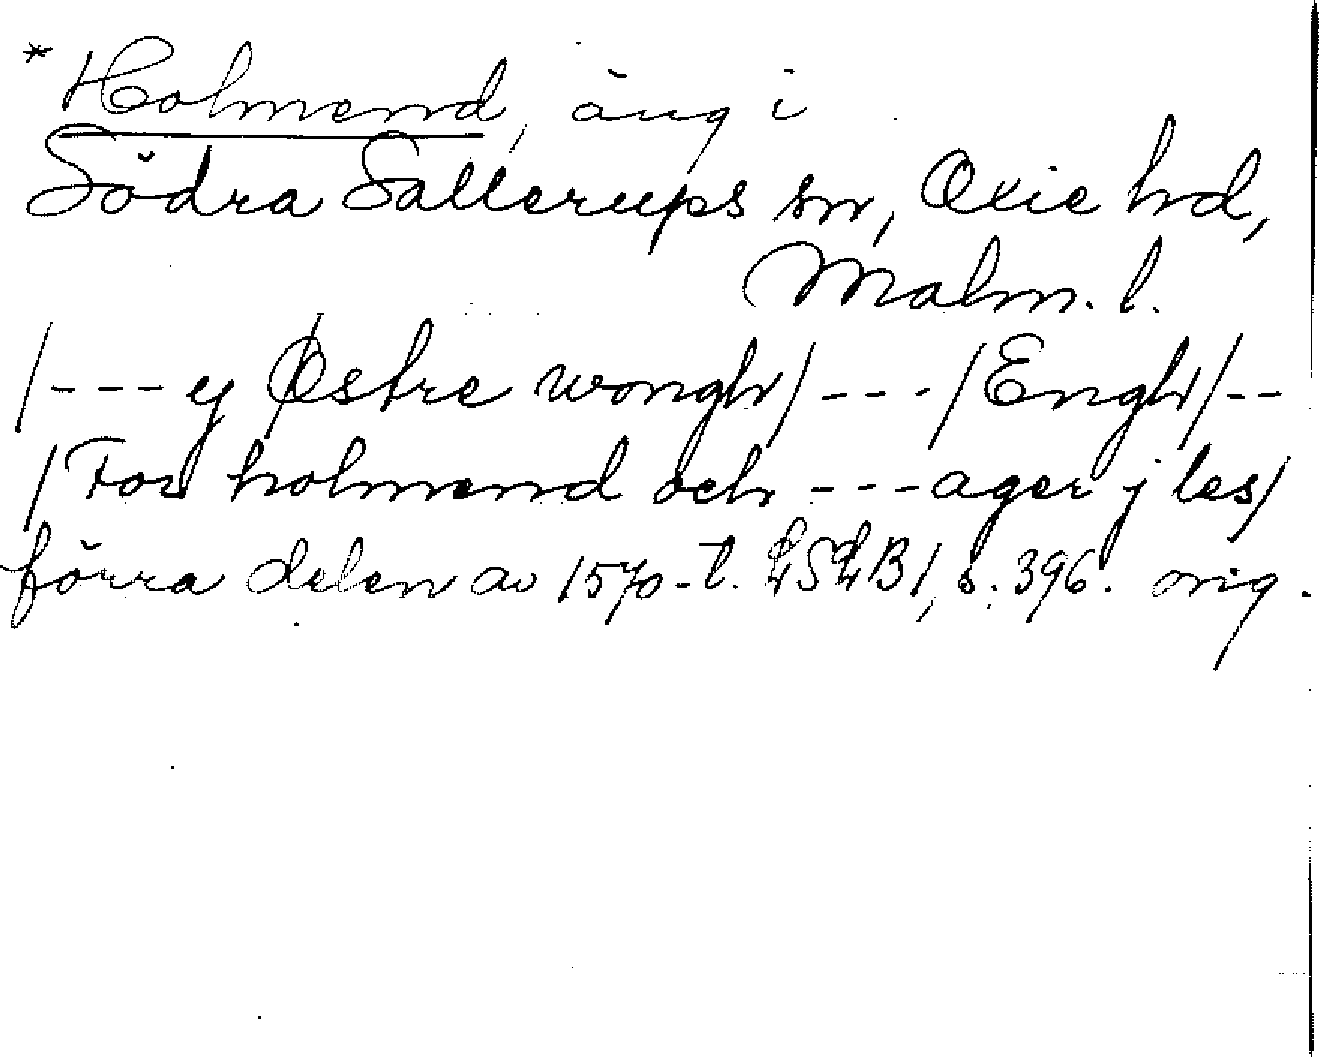 * Holmend, äng i
Södra Sallerups sn, Oxie hd,
Malm. l.
/--- y Østre wongh/ --- /Engh/ --
/For holmend och --- ager j les/
förra delen av 1570-t. LSLB 1, s. 396. orig.